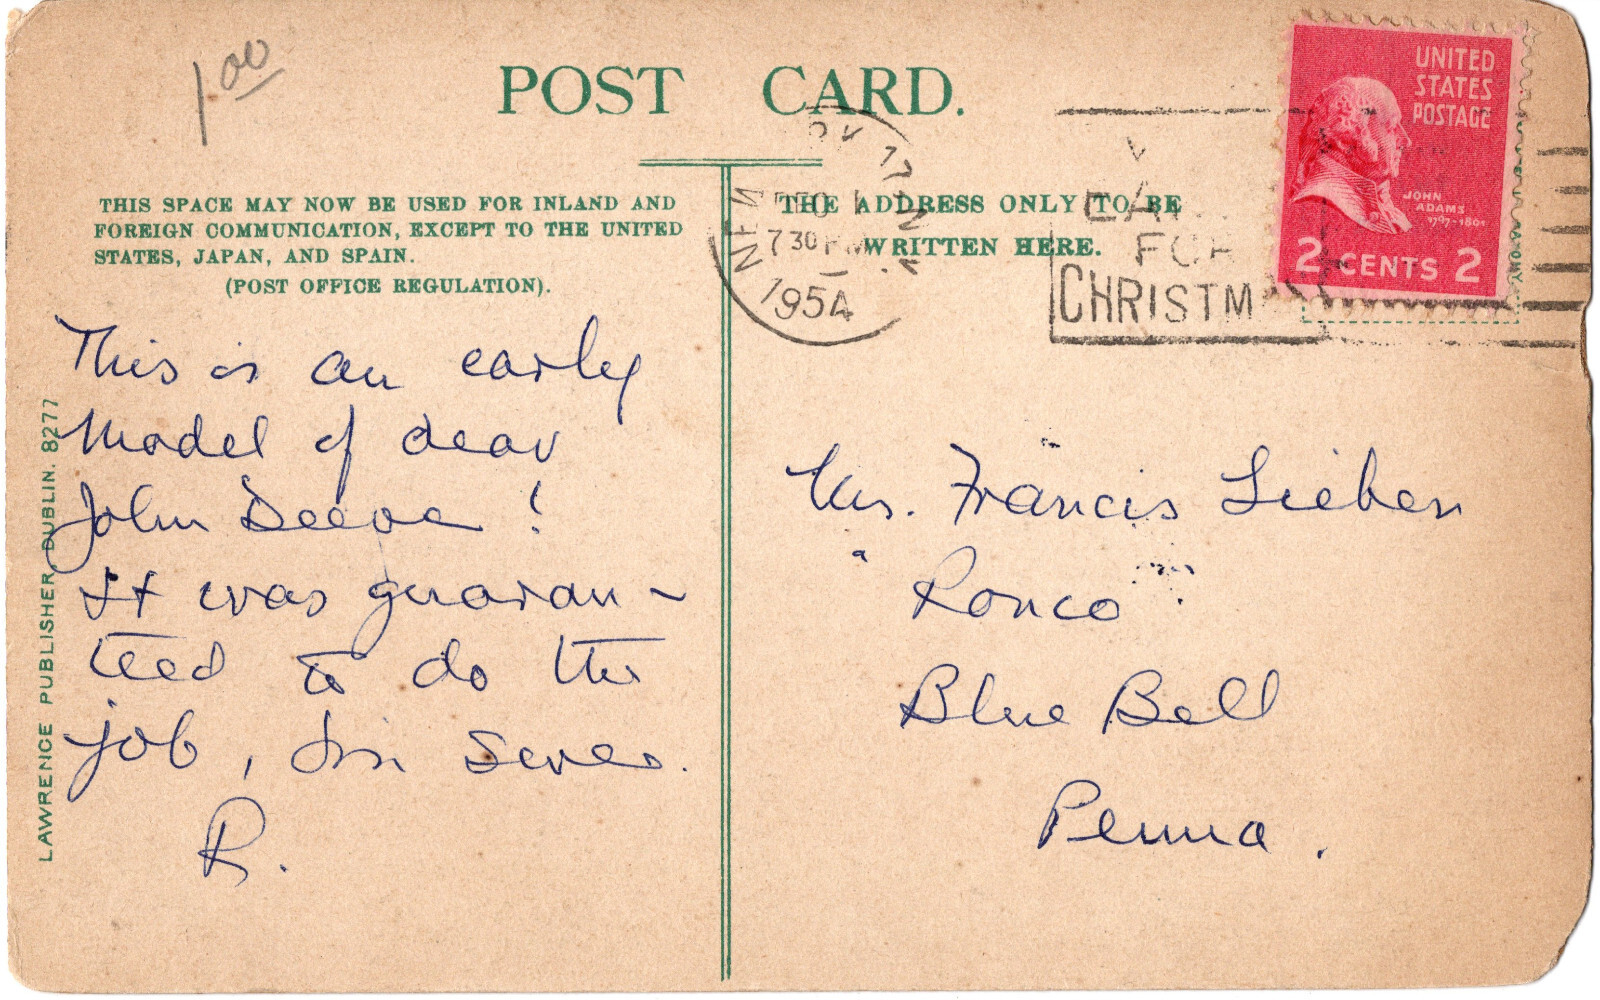 1.00
POST CARD.
THIS SPACE MAY NOW BE USED FOR INLAND AND
FOREIGN COMMUNICATION, EXCEPT TO THE UNITED
STATES, JAPAN, AND SPAIN.
(POST OFFICE REGULATION).
This is an early
model of dear
John Deere !
It was guaran-
teed to do the
job,
R.
LAWRENCE PUBLISHER, DUBLIN. 8277
THE ADDRESS ONLY TO BE
WRITTEN HERE.
NEW
7 30 PM
1954
FOR
CHRISTM
UNITED
STATES
POSTAGE
JOHN
ADAMS
1797-1801
2 CENTS 2
Mrs. Francis Lieben
"Ronco"
Blue Bell
Penna.